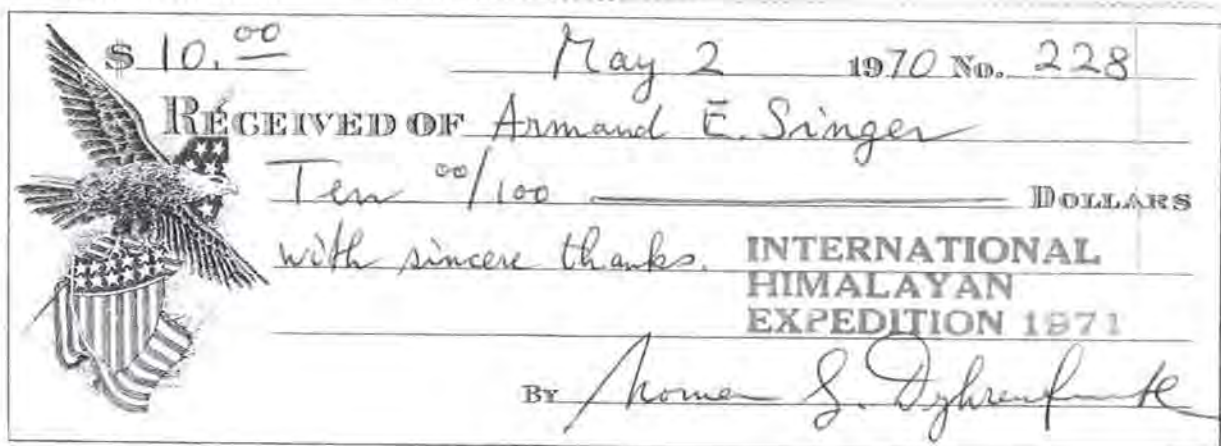 $ 10.00 May 2 1970 No. 228
RECEIVED OF Armand E. Singer
Ten 00/100 DOLLARS
with sincere thanks. INTERNATIONAL
HIMALAYAN
EXPEDITION 1971
BY Norman G. Dyhrenfurth